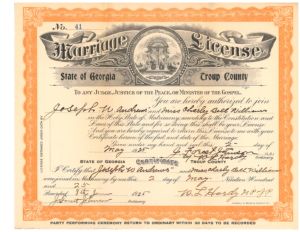 No. 41
Marriage License
State of Georgia Troup County
TO ANY JUDGE, JUSTICE OF THE PEACE, OR MINISTER OF THE GOSPEL.
You are hereby authorized to join
Joseph W Andrews and Miss
in the Holy State of Matrimony, according to the Constitution and
Laws of this State and for so doing this shall be your License.
And you are hereby required to return this License to me with your
Certificate hereon of the fact and date of the Marriage.
Given under my hand and seal this 2 day of
May 1925
STATE OF GEORGIA CERTIFICATE TROUP COUNTY
I Certify that Joseph W Andrews and Miss
were joined in Matrimony by me this 2 day of May Nineteen Hundred
and 25
1925 W L Hardy
PARTY PERFORMING CEREMONY RETURN TO ORDINARY WITHIN 30 DAYS TO BE RECORDED